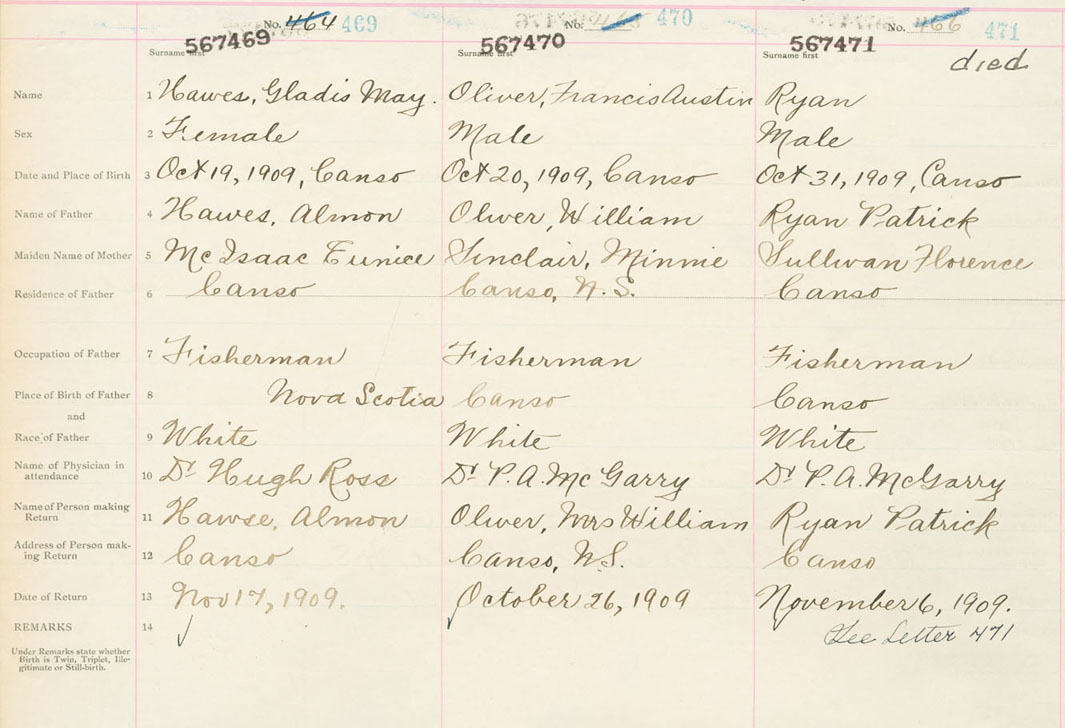 No. 464 469 No. 470 No. 466 471
567469 567470 567471
Surname first Surname first Surname first died
Name 1 Hawes, Gladis May. Oliver, Francis Austin Ryan
Sex 2 Female Male Male
Date and Place of Birth 3 Oct 19, 1909, Canso Oct 20, 1909, Canso Oct 31, 1909, Canso
Name of Father 4 Hawes, Almon Oliver, William Ryan Patrick
Maiden Name of Mother 5 McIsaac Eunice Sinclair, Minnie Sullivan Florence
Residence of Father 6 Canso Canso, N.S. Canso
Occupation of Father 7 Fisherman Fisherman Fisherman
Place of Birth of Father 8 Nova Scotia Canso Canso
and
Race of Father 9 White White White
Name of Physician in
attendance 10 Dr Hugh Ross Dr P.A. McGarry Dr P.A. McGarry
Name of Person making
Return 11 Hawse, Almon Oliver, Mrs William Ryan Patrick
Address of Person mak-
ing Return 12 Canso Canso, N.S. Canso
Date of Return 13 Nov 17, 1909. October 26, 1909 November 6, 1909.
REMARKS 14 See Letter 471
Under Remarks state whether
Birth is Twin, Triplet, Ille-
gitimate or Still-birth.